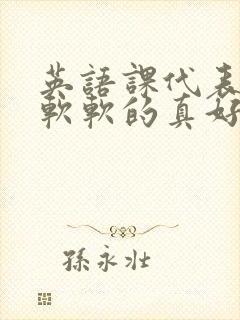 英語課代表
軟軟的真好
孫永壯